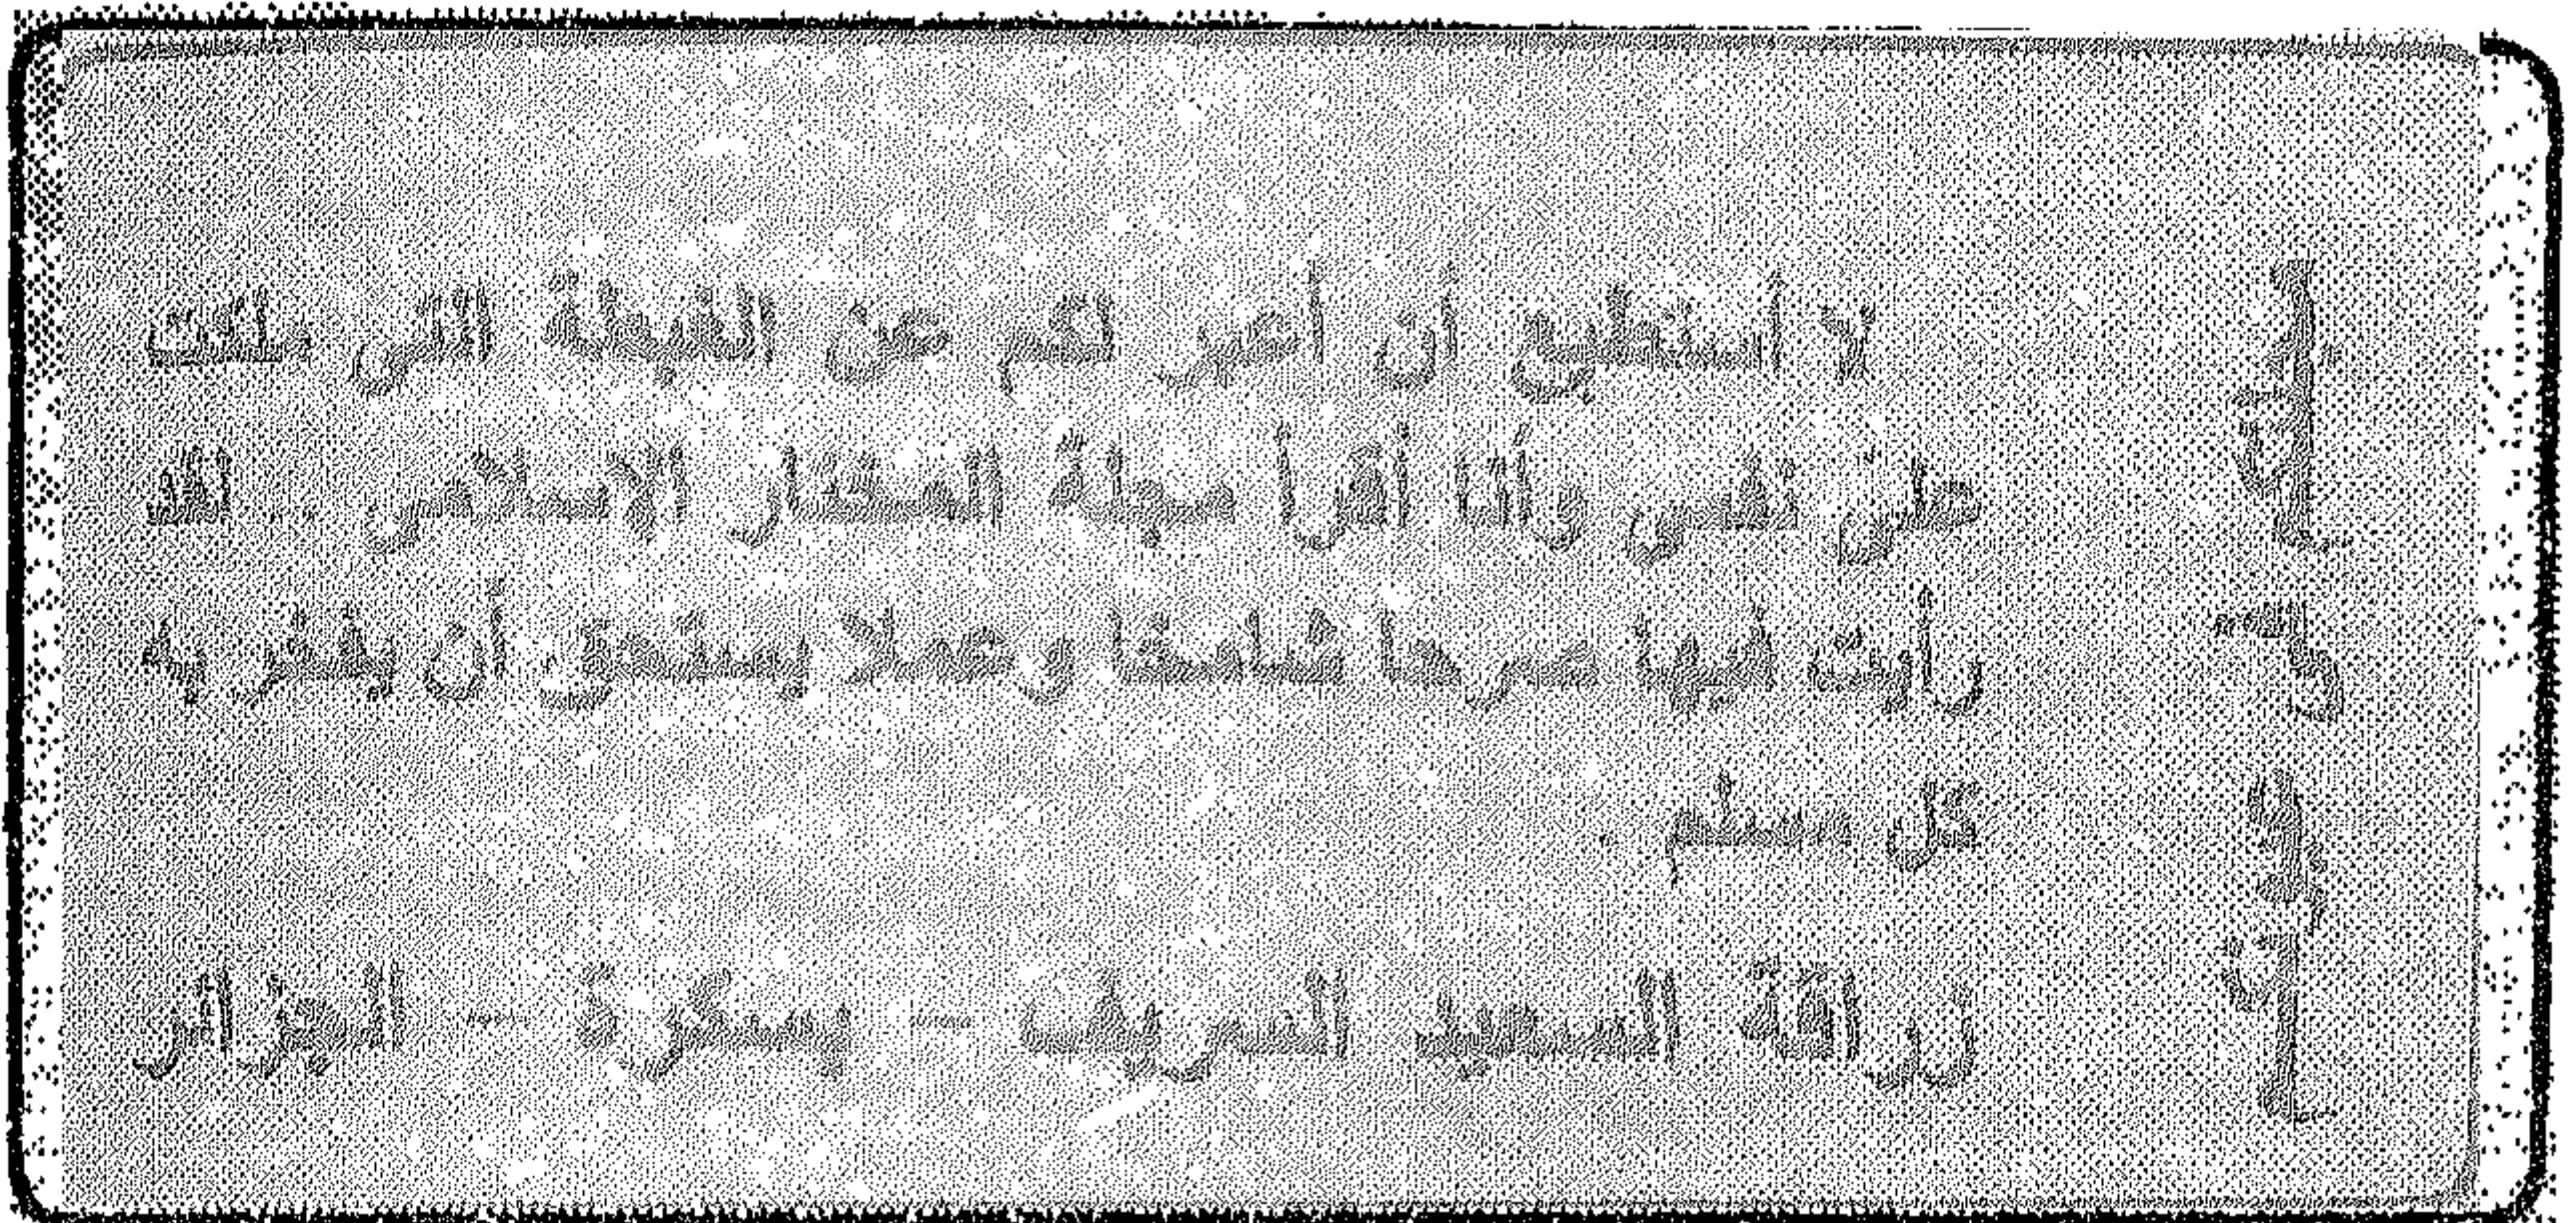 لا أستطيع أن أعبر لكم عن الغبطة التى ملكت
على نفسى وأنا أقرأ مجلة المختار الاسلامى . لقد
رأيت فيها صرحا شامخا وعملا يستحق أن يفخر به
كل مسلم .
زراقة السعيد الشريف - بسكرة - الجزائر